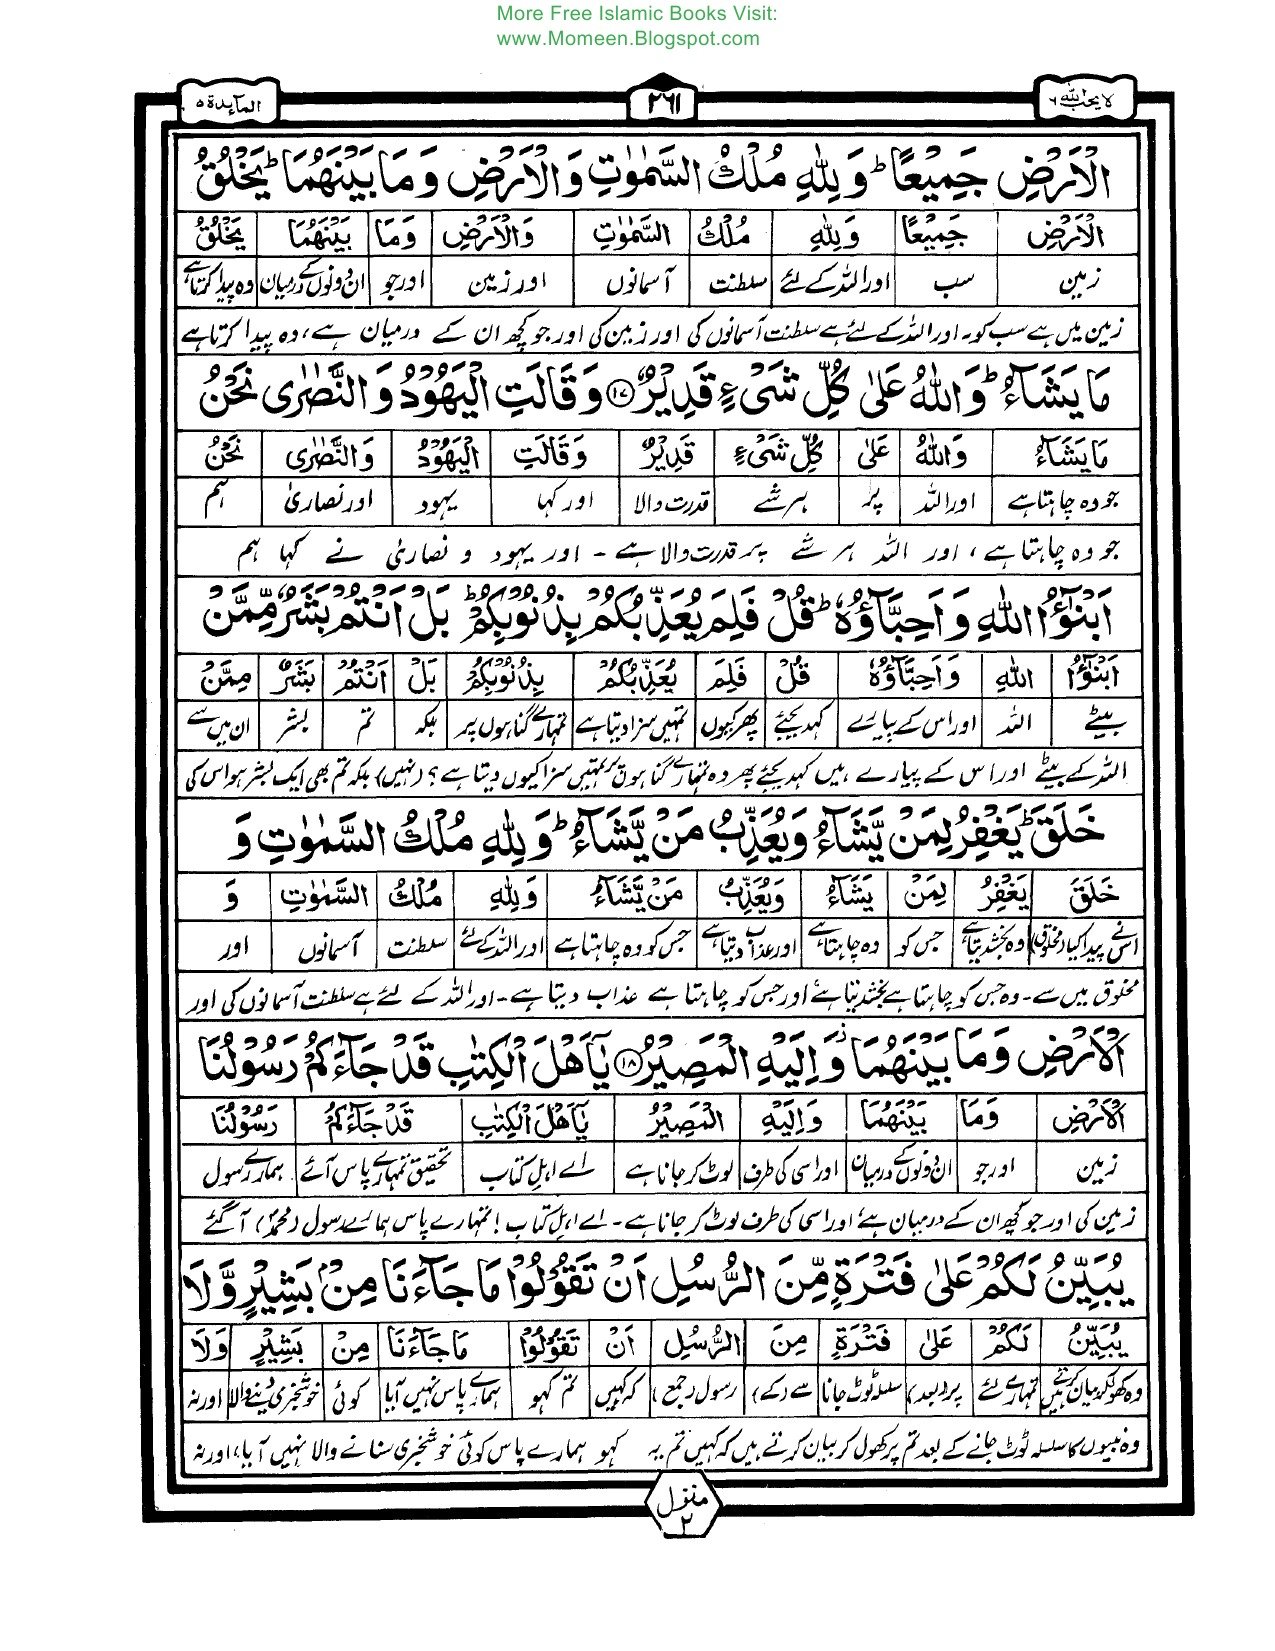 More Free Islamic Books Visit:
www.Momeen.Blogspot.com
لا يحب الله ٦
٢٦١
المآئدة ٥
الْاَرْضِ جَمِيْعًا ؕ وَلِلّٰهِ مُلْكُ السَّمٰوٰتِ وَالْاَرْضِ وَمَا بَيْنَهُمَا ؕ يَخْلُقُ
الْاَرْضِ جَمِيْعًا وَلِلّٰهِ مُلْكُ السَّمٰوٰتِ وَالْاَرْضِ وَمَا بَيْنَهُمَا يَخْلُقُ
زمین سب اور اللہ کے لئے سلطنت آسمانوں اور زمین اور جو ان دونوں کے درمیان وہ پیدا کرتا ہے
زمین میں ہے سب کو۔ اور اللہ کے لئے ہے سلطنت آسمانوں کی اور زمین کی اور جو کچھ ان کے درمیان ہے، وہ پیدا کرتا ہے
مَا يَشَآءُ ؕ وَاللّٰهُ عَلٰى كُلِّ شَىْءٍ قَدِيْرٌ ۝۱۷ وَقَالَتِ الْيَهُوْدُ وَالنَّصٰرٰى نَحْنُ
مَا يَشَآءُ وَاللّٰهُ عَلٰى كُلِّ شَىْءٍ قَدِيْرٌ وَقَالَتِ الْيَهُوْدُ وَالنَّصٰرٰى نَحْنُ
جو وہ چاہتا ہے اور اللہ پر ہر شے قدرت والا اور کہا یہود اور نصاریٰ ہم
جو وہ چاہتا ہے، اور اللہ ہر شے پر قدرت والا ہے ۔ اور یہود و نصاریٰ نے کہا ہم
اَبْنٰٓؤُا اللّٰهِ وَاَحِبَّآؤُهٗ ؕ قُلْ فَلِمَ يُعَذِّبُكُمْ بِذُنُوْبِكُمْ ؕ بَلْ اَنْتُمْ بَشَرٌ مِّمَّنْ
اَبْنٰٓؤُا اللّٰهِ وَاَحِبَّآؤُهٗ قُلْ فَلِمَ يُعَذِّبُكُمْ بِذُنُوْبِكُمْ بَلْ اَنْتُمْ بَشَرٌ مِمَّنْ
بیٹے اللہ اور اس کے پیارے کہدیجئے پھر کیوں تمہیں سزا دیتا ہے تمہارے گناہوں پر بلکہ تم بشر ان میں سے
اللہ کے بیٹے اور اس کے پیارے ہیں کہدیجئے پھر وہ تمہارے گناہوں پر تمہیں سزا کیوں دیتا ہے؟ (نہیں) بلکہ تم بھی ایک بشر ہو اس کی
خَلَقَ ؕ يَغْفِرُ لِمَنْ يَّشَآءُ وَيُعَذِّبُ مَنْ يَّشَآءُ ؕ وَلِلّٰهِ مُلْكُ السَّمٰوٰتِ وَ
خَلَقَ يَغْفِرُ لِمَنْ يَشَآءُ وَيُعَذِّبُ مَنْ يَّشَآءُ وَلِلّٰهِ مُلْكُ السَّمٰوٰتِ وَ
اس نے پیدا کیا (مخلوق) وہ بخشدیتا ہے جس کو وہ چاہتا ہے اور عذاب دیتا ہے جس کو وہ چاہتا ہے اور اللہ کے لئے سلطنت آسمانوں اور
مخلوق میں سے ۔ وہ جس کو چاہتا ہے بخشدیتا ہے اور جس کو چاہتا ہے عذاب دیتا ہے ۔ اور اللہ کے لئے ہے سلطنت آسمانوں کی اور
الْاَرْضِ وَمَا بَيْنَهُمَا ۫ وَاِلَيْهِ الْمَصِيْرُ ۝۱۸ يٰۤاَهْلَ الْكِتٰبِ قَدْ جَآءَكُمْ رَسُوْلُنَا
الْاَرْضِ وَمَا بَيْنَهُمَا وَاِلَيْهِ الْمَصِيْرُ يٰۤاَهْلَ الْكِتٰبِ قَدْ جَآءَكُمْ رَسُوْلُنَا
زمین اور جو ان دونوں کے درمیان اور اسی کی طرف لوٹ کر جانا ہے اے اہل کتاب تحقیق تمہارے پاس آئے ہمارے رسول
زمین کی اور جو کچھ ان کے درمیان ہے، اور اسی کی طرف لوٹ کر جانا ہے ۔ اے اہل کتاب! تمہارے پاس ہمارے رسول (محمدؐ) آ گئے
يُبَيِّنُ لَكُمْ عَلٰى فَتْرَةٍ مِّنَ الرُّسُلِ اَنْ تَقُوْلُوْا مَا جَآءَنَا مِنْۢ بَشِيْرٍ وَّلَا
يُبَيِّنُ لَكُمْ عَلٰى فَتْرَةٍ مِنَ الرُّسُلِ اَنْ تَقُوْلُوْا مَا جَآءَنَا مِنْ بَشِيْرٍ وَلَا
وہ کھول کر بیان کرتے ہیں تمہارے لئے پر (بعد) سلسلہ ٹوٹ جانا سے (کے) رسول (جمع) کہ کہیں تم کہو ہمارے پاس نہیں آیا کوئی خوشخبری دینے والا اور نہ
وہ نبیوں کا سلسلہ ٹوٹ جانے کے بعد تم پر کھول کر بیان کرتے ہیں کہ کہیں تم یہ کہو ہمارے پاس کوئی خوشخبری سنانے والا نہیں آیا، اور نہ
منزل
۲